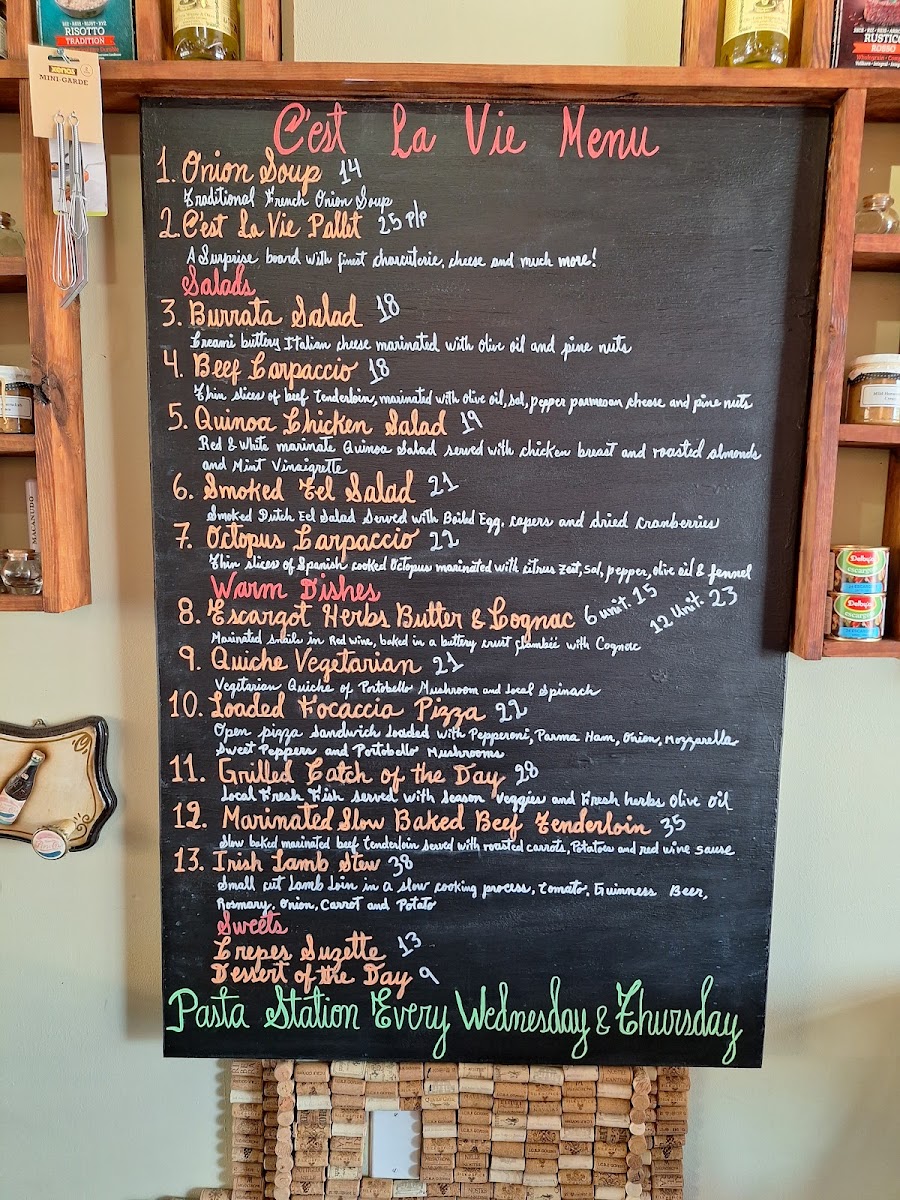 RISOTTO
TRADITION
RUSTIC
ROSSO
MINI-GARDE
MACANUDO
C'est La Vie Menu
1. Onion Soup 14
Traditional French Onion Soup
2. C'est La Vie Pallet 25 P/P
A Surprise board with finest charcuterie, cheese and much more!
Salads
3. Burrata Salad 18
Creami buttery Italian cheese marinated with olive oil and pine nuts
4. Beef Carpaccio 18
Thin slices of beef tenderloin, marinated with olive oil, sal, pepper parmesan cheese and pine nuts
5. Quinoa Chicken Salad 19
Red & White marinate Quinoa Salad served with chicken breast and roasted almonds
and Mint Vinaigrette
6. Smoked Eel Salad 21
Smoked Dutch Eel Salad Served with Boiled Egg, capers and dried cranberries
7. Octopus Carpaccio 22
Thin slices of Spanish cooked Octopus marinated with citrus zest, sal, pepper, olive oil & fennel
Warm Dishes
8. Escargot Herbs Butter & Cognac 6 unit. 15 12 Unit. 23
Marinated snails in Red wine, baked in a buttery cruit flambéé with Cognac
9. Quiche Vegetarian 21
Vegetarian Quiche of Portobello Mushroom and local Spinach
10. Loaded Focaccia Pizza 22
Open pizza sandwich loaded with Pepperoni, Parma Ham, Onion, Mozzarella,
Sweet Peppers and Portobello Mushrooms
11. Grilled Catch of the Day 28
Local Fresh Fish served with season veggies and Fresh herbs Olive oil
12. Marinated Slow Baked Beef Tenderloin 35
Slow baked marinated beef tenderloin served with roasted carrots, Potatoes and red wine sause
13. Irish Lamb Stew 38
Small cut lamb loin in a slow cooking process, tomato, Guinness Beer,
Rosmary, Onion, Carrot and Potato
Sweets
Crepes Suzette 13
Dessert of the Day 9
Pasta Station Every Wednesday & Thursday